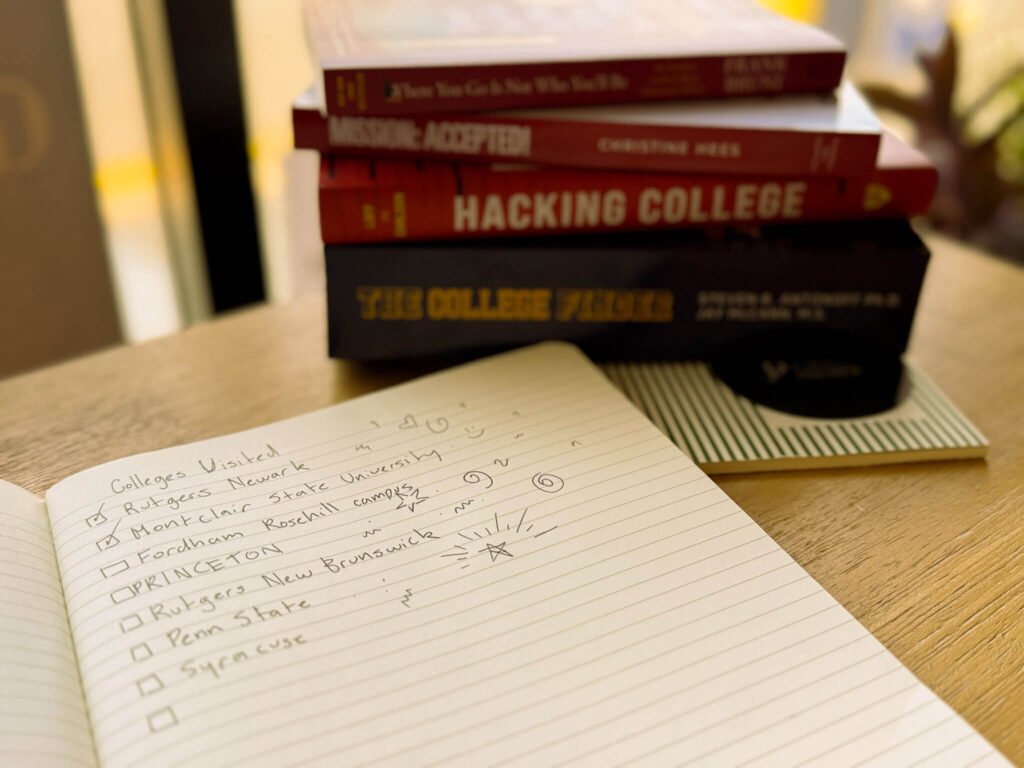 Where You Go Is Not Who You'll Be
FRANK BRUNI
MISSION: ACCEPTED!
CHRISTINE HEES
HACKING COLLEGE
THE COLLEGE FINDER
STEVEN R. ANTONOFF PH.D.
JAY McCANN, M.S.
Colleges Visited
Rutgers Newark
Montclair State University
Fordham Rosehill campus
PRINCETON
Rutgers New Brunswick
Penn State
Syracuse